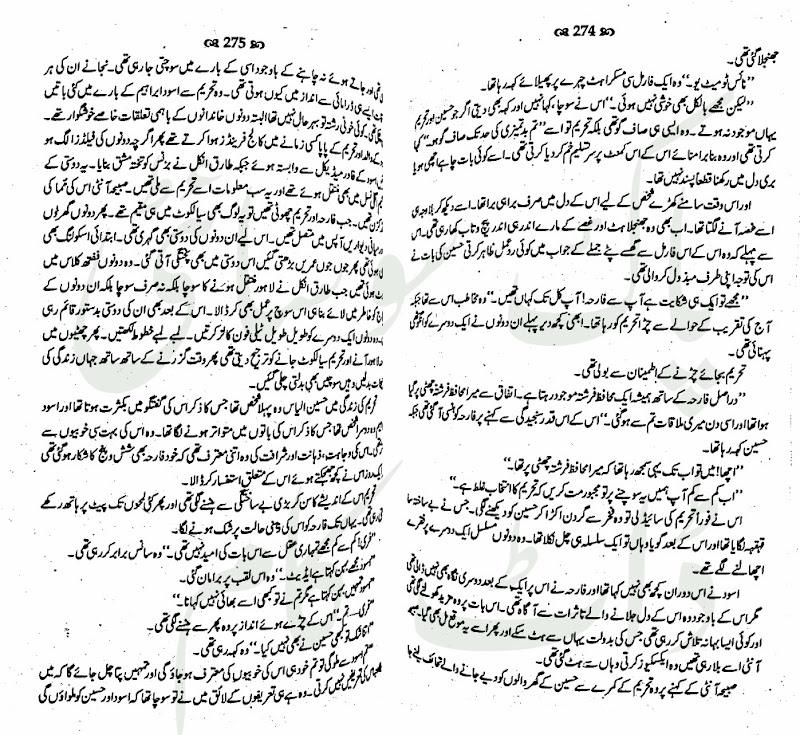 274
جھنجلا گئی تھی۔
”نائس ٹو میٹ یو۔“ وہ ایک فارمل سی مسکراہٹ چہرے پر پھیلائے کہہ رہا تھا۔
”لیکن مجھے بالکل بھی خوشی نہیں ہوئی۔“ اس نے سوچا، کہا نہیں اور کہہ بھی دیتی اگر جو حسین اور تحریم
یہاں موجود نہ ہوتے۔ وہ ایسی ہی صاف گو تھی بلکہ تحریم تو اسے ”تم بدتمیزی کی حد تک صاف گو ہو۔“ کہا
کرتی تھی اور وہ بنا برا منائے اس کے اس کمنٹ پر سر تسلیم خم کر دیا کرتی تھی۔ اسے کوئی بات چاہے اچھی ہو یا
بری دل میں رکھنا قطعاً پسند نہیں تھا۔
اور اس وقت سامنے کھڑے شخص کے لیے اس کے دل میں صرف برا ہی برا تھا۔ اسے دیکھ کر بلاوجہ ہی
اسے غصہ آنے لگتا تھا۔ اب بھی وہ جھنجلاہٹ اور غصے کے مارے اندر ہی اندر پیچ و تاب کھا رہی تھی۔ اس
سے پہلے کہ وہ اس کے اس فارمل سے گھسے پٹے جملے کے جواب میں کوئی ردعمل ظاہر کرتی حسین کی بات نے
اس کی توجہ اپنی طرف مبذول کروالی تھی۔
”مجھے تو ایک ہی شکایت ہے آپ سے فارحہ! آپ کل تک کہاں تھیں۔“ وہ مخاطب اس سے تھا جبکہ
آج کی تقریب کے حوالے سے چڑا تحریم کو رہا تھا۔ ابھی کچھ دیر پہلے ان دونوں نے ایک دوسرے کو انگوٹھی
پہنائی تھی۔
تحریم بجائے چڑنے کے اطمینان سے بولی تھی۔
”دراصل فارحہ کے ساتھ ہمیشہ ایک محافظ فرشتہ موجود رہتا ہے۔ اتفاق سے میرا محافظ فرشتہ چھٹی پر گیا
ہوا تھا اور اسی دن میری ملاقات تم سے ہو گئی۔“ اس کے اس قدر سنجیدگی سے کہنے پر فارحہ کو ہنسی آ گئی تھی جبکہ
حسین کہہ رہا تھا۔
”اچھا! میں تو اب تک یہی سمجھ رہا تھا کہ میرا محافظ فرشتہ چھٹی پر تھا۔“
”اب کم سے کم آپ ہمیں یہ سوچنے پر تو مجبور مت کریں کہ تحریم کا انتخاب غلط ہے۔“
اس نے فوراً تحریم کی سائیڈ لی تو وہ فخر سے گردن اکڑا کر حسین کو دیکھنے لگی۔ جس نے بے ساختہ
قہقہہ لگایا تھا اور اس کے بعد گویا وہاں تو ایک سلسلہ ہی چل نکلا تھا۔ وہ دونوں مسلسل ایک دوسرے پر فقرے
اچھالنے لگے تھے۔
اسود نے اس دوران کچھ بھی نہیں کہا تھا اور فارحہ نے اس پر ایک کے بعد دوسری نگاہ بھی نہیں ڈالی تھی
مگر اس کے باوجود وہ اس کے دل جلانے والے تاثرات سے آگاہ تھی۔ اس بات پر وہ مزید کھولنے لگی تھی
اور کوئی ایسا بہانہ تلاش کر رہی تھی جس کی بدولت یہاں سے ہٹ سکے اور پھر اسے یہ موقع مل بھی گیا۔ صبیحہ
آنٹی اسے بلا رہی تھیں وہ ایکسکیوز کرتی وہاں سے ہٹ گئی تھی۔
صبیحہ آنٹی کے کہنے پر وہ تحریم کے کمرے سے حسین کے گھر والوں کو دیے جانے والے تحائف لینے جا
275
تھی اور جاتے ہوئے نہ چاہنے کے باوجود اسی کے بارے میں سوچتی جا رہی تھی۔ نجانے ان کی ہر
ایسے ہی ڈرامائی سے انداز میں کیوں ہوتی تھی۔ وہ تحریم سے اسود ابراہیم کے بارے میں کئی باتیں
تھی۔ کوئی خونی رشتہ تو بہرحال نہیں تھا البتہ دونوں خاندانوں کے باہمی تعلقات خاصے خوشگوار تھے۔
کے والد اور تحریم کے پاپا کسی زمانے میں کالج فرینڈز ہوا کرتے تھے پھر اگرچہ دونوں کی فیلڈز الگ ہو
اسود کے فادر میڈیکل سے وابستہ ہوئے جبکہ طارق انکل نے بزنس کو تختہ مشق بنایا۔ یہ دوستی کے
میں بھی منتقل ہوئے تھے اور یہ سب معلومات اسے تحریم سے ملی تھیں۔ صبیحہ آنٹی اس کی مما کی
کزن تھیں۔ جب فارحہ اور تحریم چھوٹی تھیں تو یہ لوگ بھی سیالکوٹ میں ہی مقیم تھے۔ پھر دونوں گھروں
درمیانی دیواریں آپس میں متصل تھیں۔ اس لیے ان دونوں کی دوستی بھی گہری تھی۔ ابتدائی اسکولنگ بھی
ہوئی تھی پھر جوں جوں عمریں بڑھتی گئیں اس دوستی میں بھی پختگی آتی گئی۔ وہ دونوں ففتھ کلاس میں
ہوئی تھیں جب طارق انکل نے لاہور منتقل ہونے کا سوچا بلکہ نہ صرف سوچا بلکہ ان دونوں کے
کو خاطر میں لائے بنا ہی اس سوچ پر عمل بھی کر ڈالا۔ اس کے بعد بھی ان کی دوستی بدستور قائم رہی
دونوں ایک دوسرے کو طویل طویل ٹیلی فون کالز کرتیں۔ لمبے لمبے خطوط لکھتیں۔ پھر چھٹیوں میں
لاہور آنے اور تحریم سیالکوٹ جانے کو ترجیح دیتی تھی پھر وقت گزرنے کے ساتھ ساتھ جہاں زندگی کی
بدلیں وہیں سوچیں بھی بدلتی چلی گئیں۔
تحریم کی زندگی میں حسین الیاس وہ پہلا شخص تھا جس کا ذکر اس کی گفتگو میں بکثرت ہوتا تھا اور اسود
وہ دوسرا شخص تھا جس کا ذکر اس کی باتوں میں متواتر ہونے لگا تھا۔ وہ اس کی بہت سی خوبیوں سے
تھی۔ اس کی وجاہت، ذہانت اور شرافت کی وہ اتنی معترف تھی کہ خود فارحہ بھی شش و پنج کا شکار ہو گئی تھی
ایک روز اس نے کچھ جھجکتے ہوئے اس کے متعلق استفسار کر ڈالا۔
تحریم اس کے اندیشے کا سن کر بڑی بے ساختگی سے ہنسنے لگی تھی اور پھر کئی لمحوں تک پیٹ پر ہاتھ رکھے
رہی تھی۔ یہاں تک کہ فارحہ کو اس کی ذہنی حالت پر شک ہونے لگا۔
”فری! کم سے کم مجھے تمہاری عقل سے اس بات کی امید نہیں تھی۔“ وہ سانس برابر کر رہی تھی۔
”اسود مجھے بہن کہتا ہے ایڈیٹ۔“ وہ اس لقب پر برا مان گئی۔
”اسود تمہیں بہن کہتا ہے مگر تم نے تو کبھی اسے بھائی نہیں کہا نا۔“
”فری۔ تم۔“ اس کے چڑے ہوئے انداز پر وہ پھر سے ہنسنے لگی تھی۔
تو کبھی حسین نے بھی نہیں کیا۔“ وہ کہہ رہی تھی۔
”تم اسود سے ملو گی تو تم خود ہی اس کی خوبیوں کی معترف ہو جاؤ گی اور تمہیں پتا چل جائے گا کہ میں
کی تعریفیں نہیں کرتی۔ وہ ہے ہی تعریفوں کے لائق میں نے تو سوچا تھا کہ اسود اور حسین کو ملواؤں گی